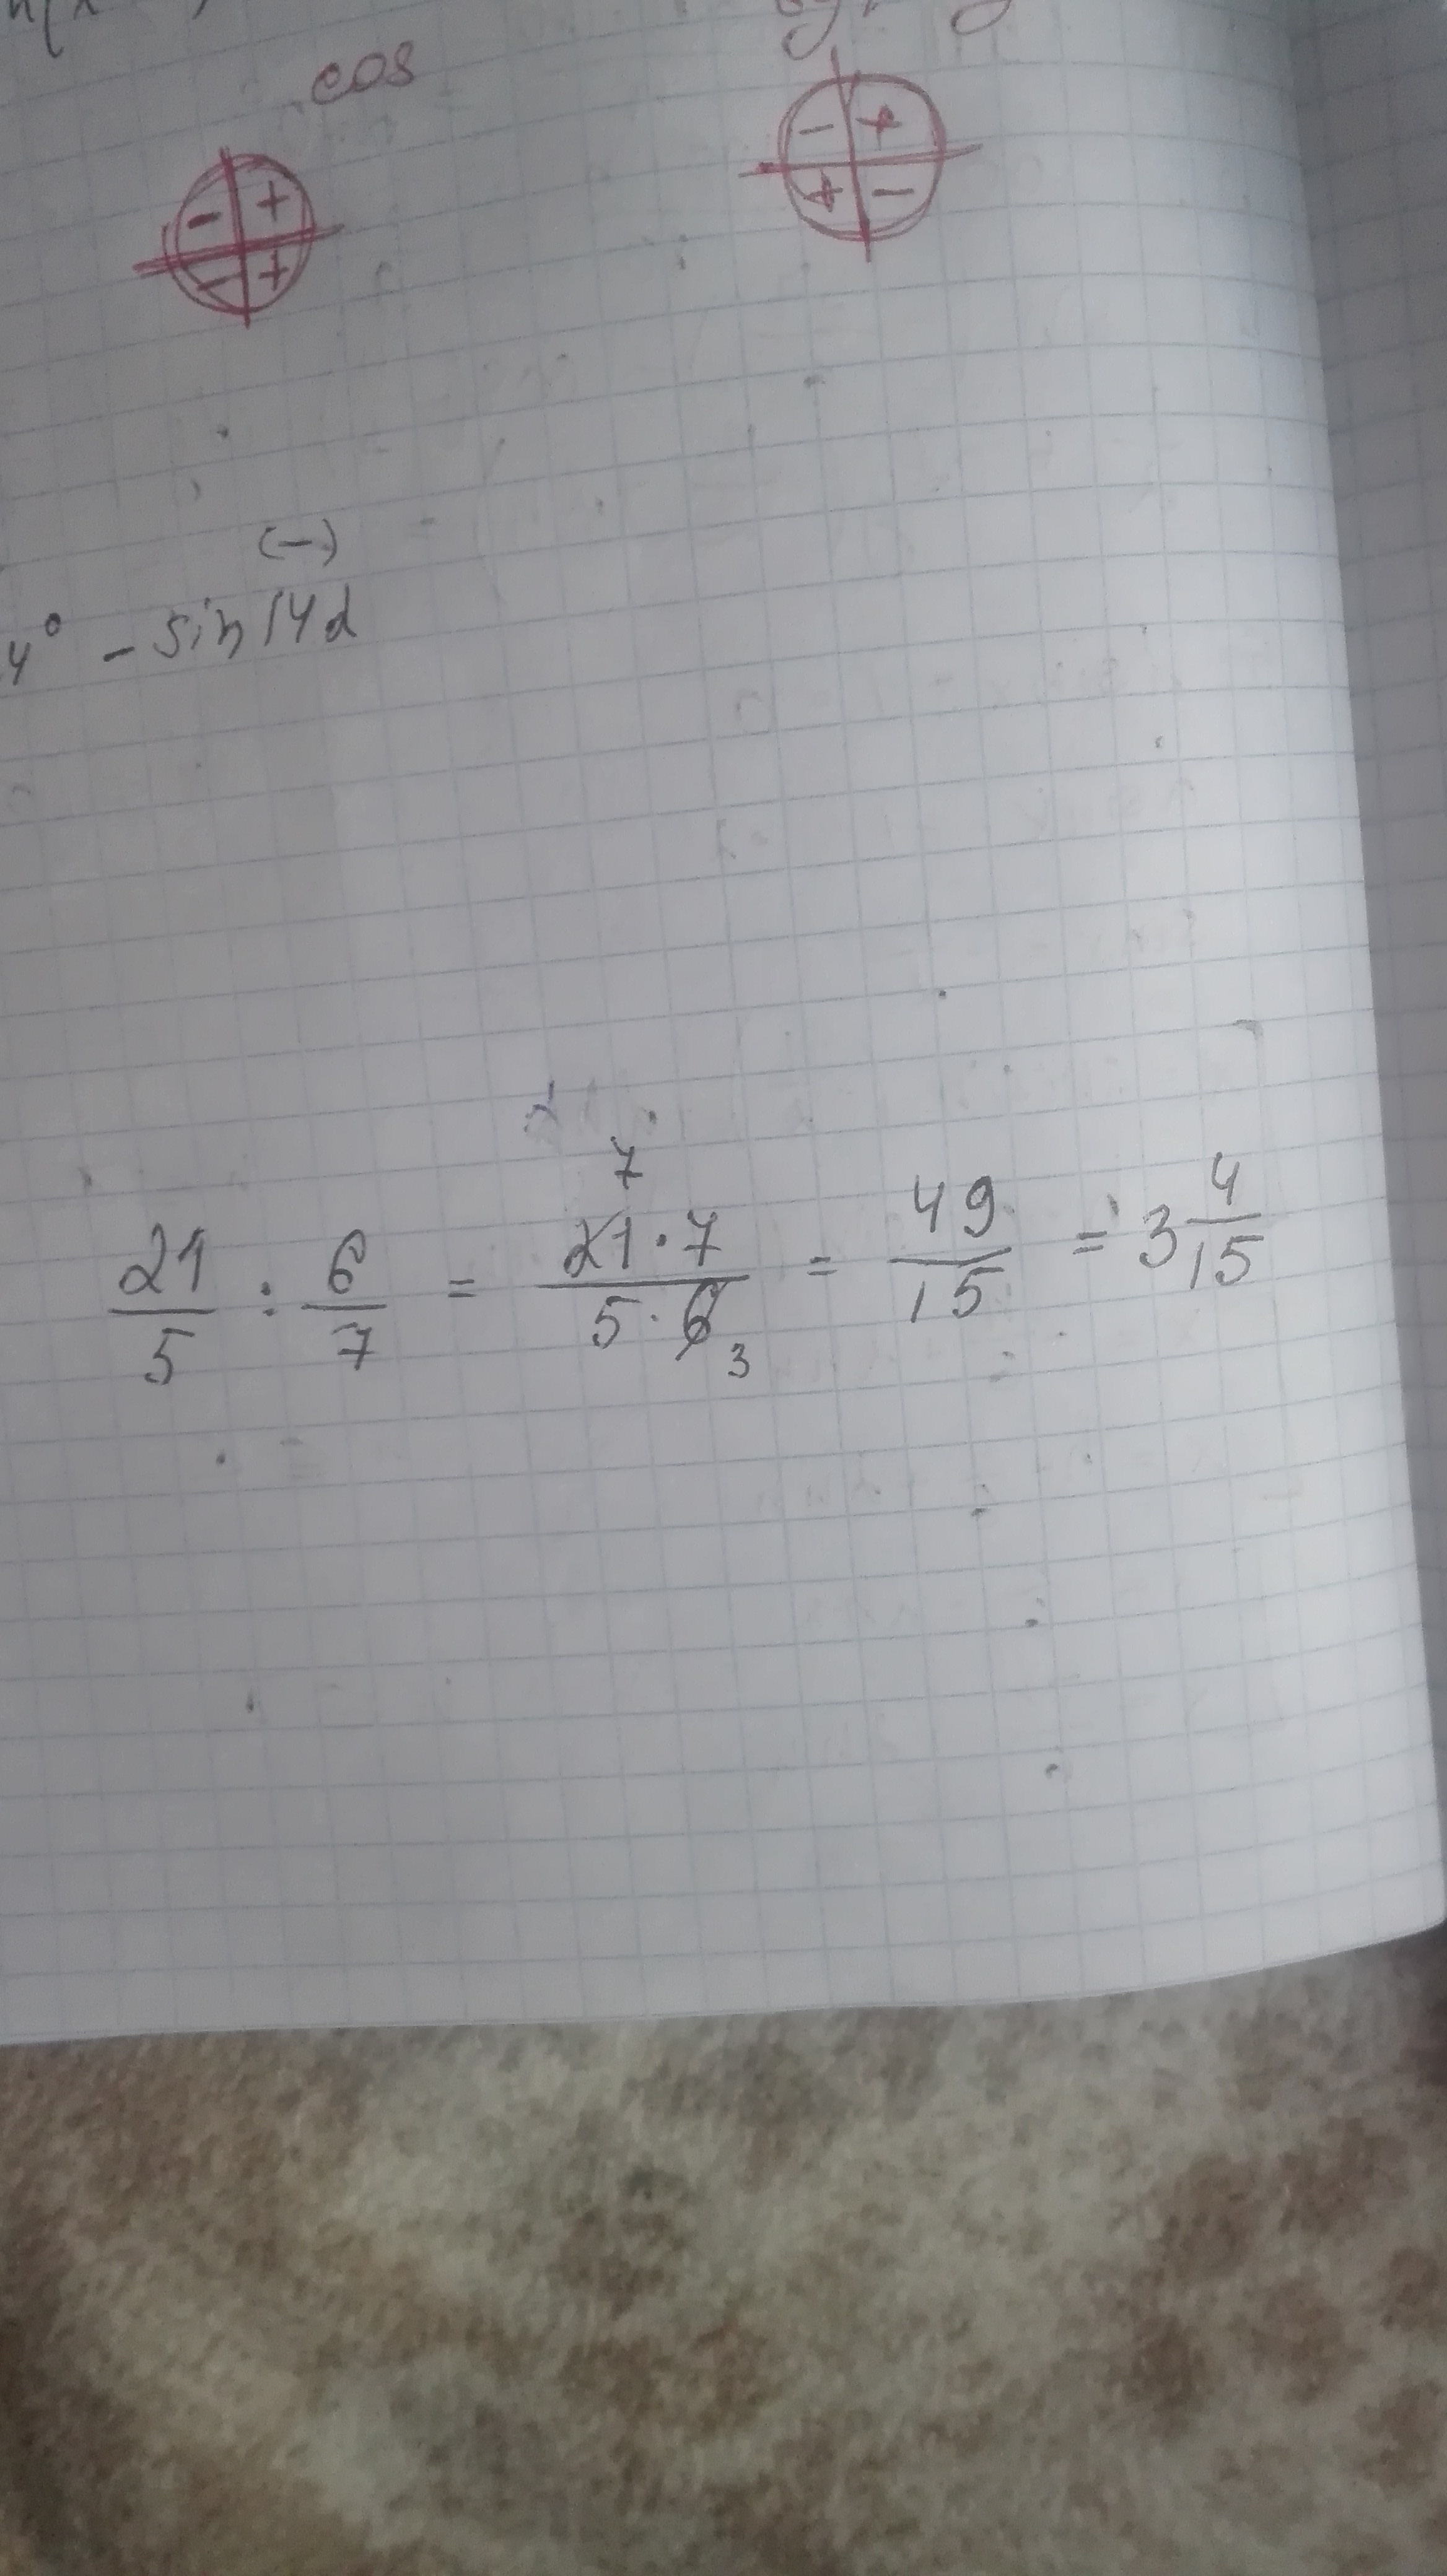 cos
- + - +
- + + -
(-)
4° - sin 14α
7
21/5 : 6/7 = 21·7/5·6 = 49/15 = 3 4/15
3